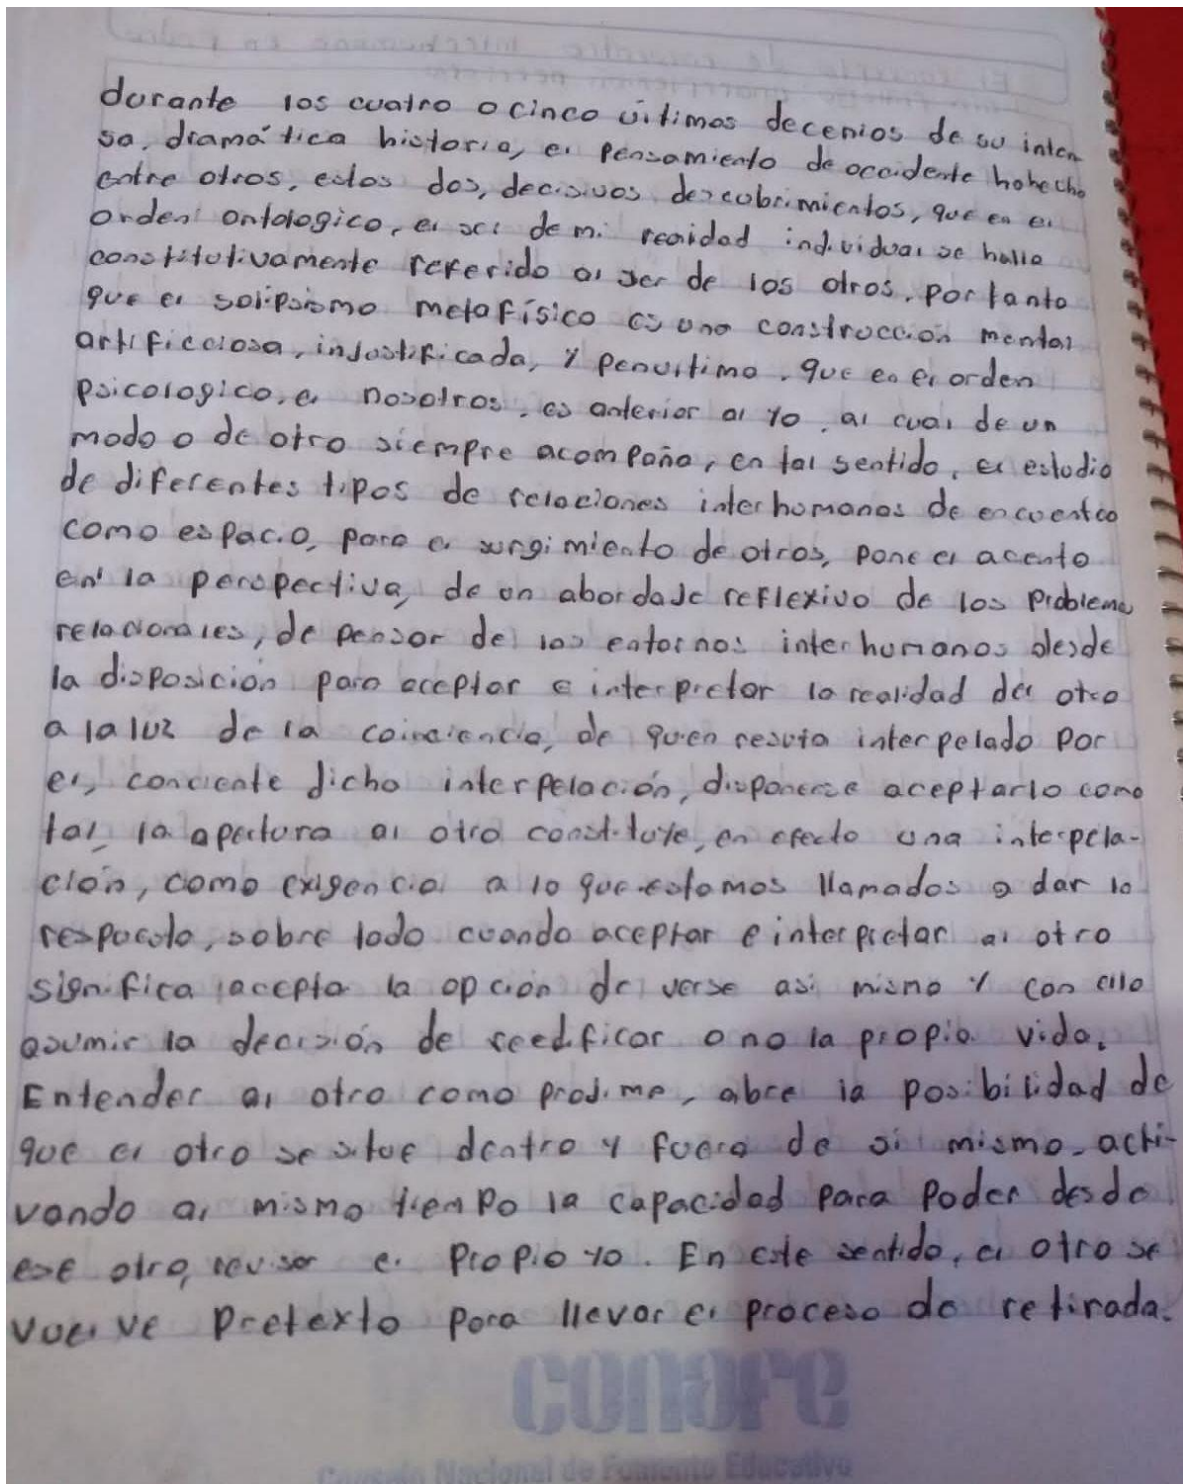 durante los cuatro o cinco últimos decenios de su inten
sa, dramática historia, el pensamiento de occidente ha hecho
entre otros, estos dos, decisivos descubrimientos, que en el
orden ontologico, el ser de mi realidad individual se halla
constitutivamente referido al ser de los otros, por tanto
que el solipsismo metafísico es una construcción mental
artificciosa, injustificada, y penultima. que en el orden
psicologico, el nosotros, es anterior al yo, al cual de un
modo o de otro siempre acompaña, en tal sentido, el estudio
de diferentes tipos de relaciones interhumanas de encuentro
como espacio, para el surgimiento de otros, pone el acento
en la perspectiva, de un abordaje reflexivo de los problema
relacionales, de pensar de los entornos interhumanos desde
la disposición para aceptar e interpretar la realidad del otro
a la luz de la coinciencia, de quien resulta interpelado por
el, conciente dicha interpelación, disponerse aceptarlo como
tal, la apertura al otro constituye, en efecto una interpela-
ción, como exigencia a lo que estamos llamados a dar la
respuesta, sobre todo cuando aceptar e interpretar al otro
significa acepta la opción de verse asi mismo y con ello
asumir la decisión de reedificar o no la propia vida.
Entender al otro como prójimo, abre la posibilidad de
que el otro se situe dentro y fuera de si mismo, acti-
vando al mismo tiempo la capacidad para poder desde
ese otro, revisar el propio yo. En este sentido, el otro se
vuelve pretexto para llevar el proceso de retirada.
conafe
Consejo Nacional de Fomento Educativo